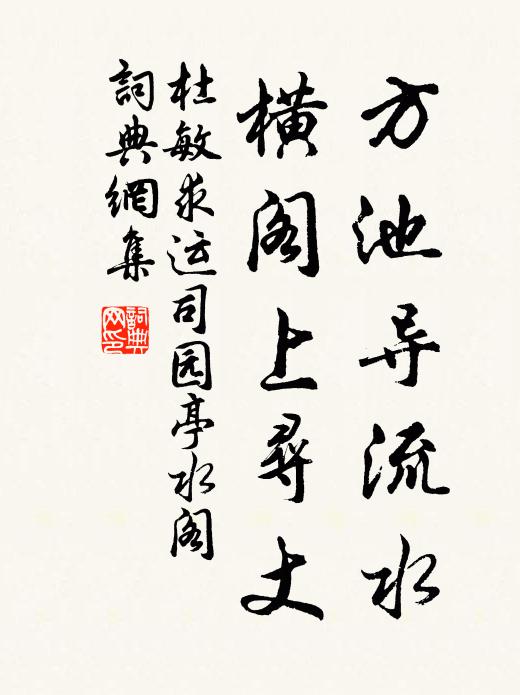 方池导流水
横阁上尋丈
杜敏求运司园亭水阁
詞典網集
詞典网印